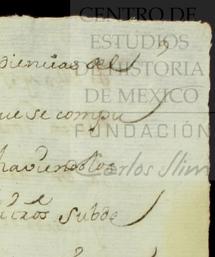 CENTRO DE
ESTUDIOS
DE HISTORIA
DE MEXICO
FUNDACIÓN
Carlos Slim
diencias del
que se compu
haviendolos
Subde